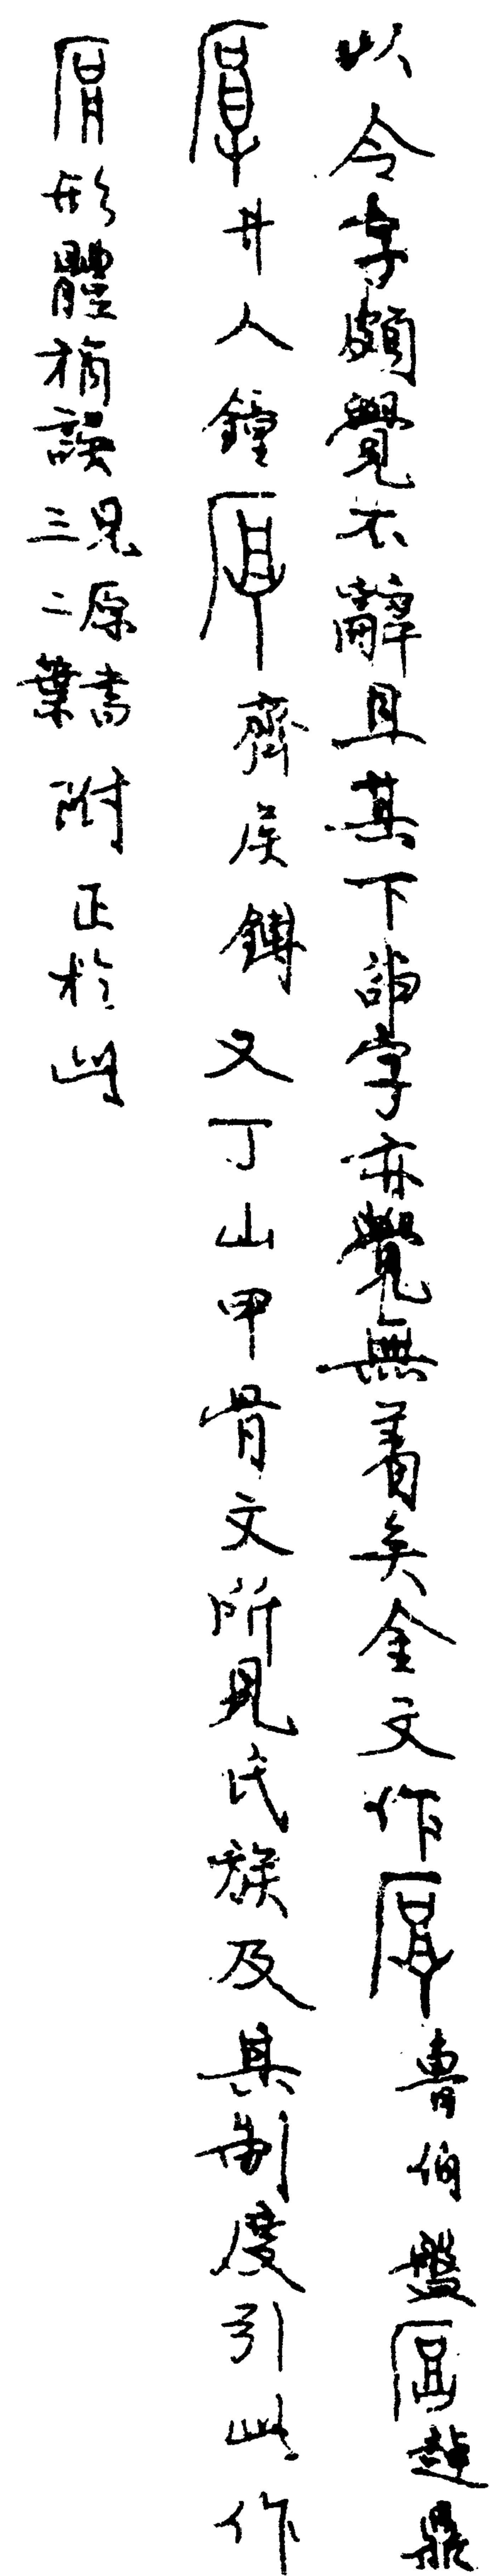 以令字頗覺不辭且其下字亦覺無着矣金文作魯伯盤趠鼎
井人鐘齊侯鎛又丁山甲骨文所見氏族及其制度引此作
形體稍誤見原書三二葉附正於此